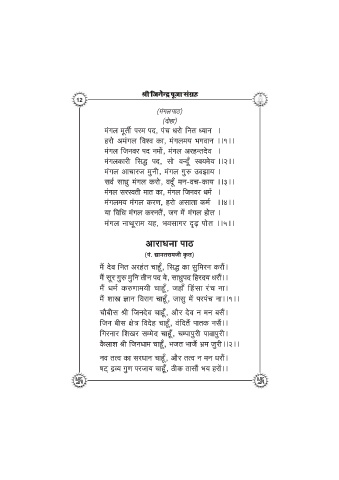 श्री जिनेन्द्र पूजा संग्रह
12
(मंगल पाठ)
(दोहा)
मंगल मूर्ती परम पद, पंच धरो नित ध्यान ।
हरो अमंगल विश्व का, मंगलमय भगवान ।।१।।
मंगल जिनवर पद नमों, मंगल अरहन्तदेव ।
मंगलकारी सिद्ध पद, सो वन्दूँ स्वयमेव ।।२।।
मंगल आचारज मुनी, मंगल गुरु उवझाय ।
सर्व साधु मंगल करो, वंदूँ मन-वच-काय ।।३।।
मंगल सरस्वती मात का, मंगल जिनवर धर्म ।
मंगलमय मंगल करण, हरो असाता कर्म ।।४।।
या विधि मंगल करनतें, जग में मंगल होत ।
मंगल नाथूराम यह, भवसागर दृढ़ पोत ।।५।।
आराधना पाठ
(पं. द्यानतरायजी कृत)
मैं देव नित अरहंत चाहूँ, सिद्ध का सुमिरन करौं।
मैं सूर गुरु मुनि तीन पद ये, साधुपद हिरदय धरौं।।
मैं धर्म करुणामयी चाहूँ, जहाँ हिंसा रंच ना।
मैं शास्त्र ज्ञान विराग चाहूँ, जासु में परपंच ना।।१।।
चौबीस श्री जिनदेव चाहूँ, और देव न मन बसैं।
जिन बीस क्षेत्र विदेह चाहूँ, वंदितैं पातक नसैं।।
गिरनार शिखर सम्मेद चाहूँ, चम्पापुरी पावापुरी।
कैलाश श्री जिनधाम चाहूँ, भजत भाजैं भ्रम जुरी।।२।।
नव तत्व का सरधान चाहूँ, और तत्व न मन धरौं।
षट् द्रव्य गुण परजाय चाहूँ, ठीक तासौं भय हरौं।।